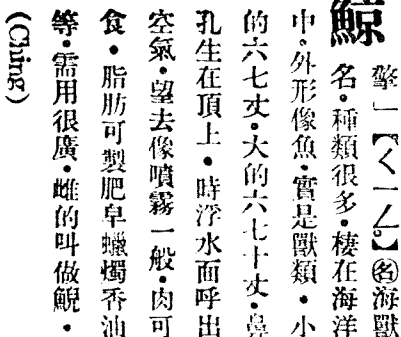 鯨
擎」【ㄑㄧㄥ】㊔海獸
名·種類很多·棲在海洋
中·外形像魚·實是獸類·小
的六七丈·大的六七十丈·鼻
孔生在頂上·時浮水面呼出
空氣·望去像噴霧一般·肉可
食·脂肪可製肥皁蠟燭香油
等·需用很廣·雌的叫做鯢·
(Ching)